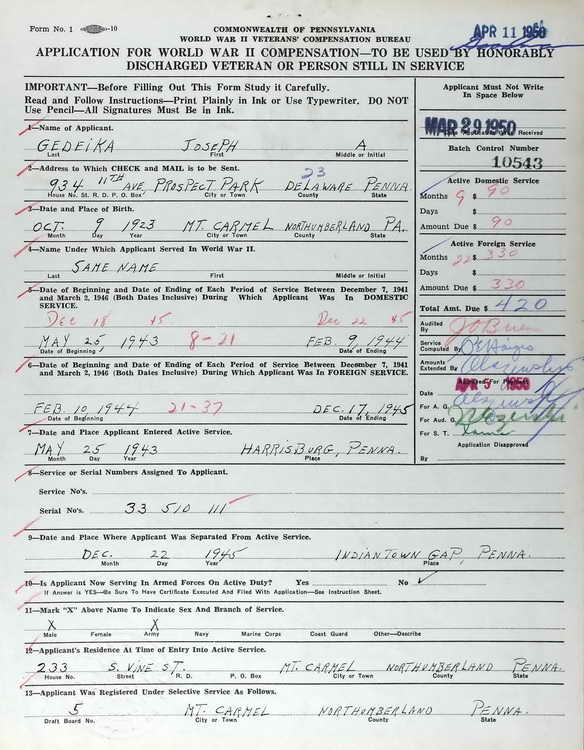 Form No. 1 -10
COMMONWEALTH OF PENNSYLVANIA
WORLD WAR II VETERANS' COMPENSATION BUREAU
APR 11 1950
APPLICATION FOR WORLD WAR II COMPENSATION—TO BE USED BY HONORABLY
DISCHARGED VETERAN OR PERSON STILL IN SERVICE
IMPORTANT—Before Filling Out This Form Study it Carefully.
Read and Follow Instructions—Print Plainly in Ink or Use Typewriter. DO NOT
Use Pencil—All Signatures Must Be in Ink.
1—Name of Applicant.
GEDEIKA JOSEPH A
Last First Middle or Initial
2—Address to Which CHECK and MAIL is to be Sent.
23
934 11TH AVE. PROSPECT PARK DELAWARE PENNA
House No. St. R. D. P. O. Box City or Town County State
3—Date and Place of Birth.
OCT. 9 1923 MT. CARMEL NORTHUMBERLAND PA.
Month Day Year City or Town County State
4—Name Under Which Applicant Served In World War II.
SAME NAME
Last First Middle or Initial
5—Date of Beginning and Date of Ending of Each Period of Service Between December 7, 1941
and March 2, 1946 (Both Dates Inclusive) During Which Applicant Was In DOMESTIC
SERVICE.
Dec 18 45 Dec 22 45
MAY 25, 1943 8-21 FEB. 9, 1944
Date of Beginning Date of Ending
6—Date of Beginning and Date of Ending of Each Period of Service Between December 7, 1941
and March 2, 1946 (Both Dates Inclusive) During Which Applicant Was In FOREIGN SERVICE.
FEB. 10, 1944 21-37 DEC. 17, 1945
Date of Beginning Date of Ending
7—Date and Place Applicant Entered Active Service.
MAY 25 1943 HARRISBURG, PENNA.
Month Day Year Place
8—Service or Serial Numbers Assigned To Applicant.
Service No's.
Serial No's. 33 510 111
9—Date and Place Where Applicant Was Separated From Active Service.
DEC. 22 1945 INDIANTOWN GAP, PENNA.
Month Day Year Place
10—Is Applicant Now Serving In Armed Forces On Active Duty? Yes No ✓
If Answer is YES—Be Sure To Have Certificate Executed And Filed With Application—See Instruction Sheet.
11—Mark "X" Above Name To Indicate Sex And Branch of Service.
X X
Male Female Army Navy Marine Corps Coast Guard Other—Describe
12—Applicant's Residence At Time of Entry Into Active Service.
233 S. VINE ST. MT. CARMEL NORTHUMBERLAND PENNA.
House No. Street R. D. P. O. Box City or Town County State
13—Applicant Was Registered Under Selective Service As Follows.
5 MT. CARMEL NORTHUMBERLAND PENNA.
Draft Board No. City or Town County State
Applicant Must Not Write
In Space Below
MAR 29 1950
Received
Batch Control Number
10543
Active Domestic Service
Months 9 $ 90
Days $
Amount Due $ 90
Active Foreign Service
Months 22 $ 330
Days $
Amount Due $ 330
Total Amt. Due $ 420
Audited
By
Service
Computed By
Amounts
Extended By
Approved For Payment
Date
For A. G.
For Aud. G.
For S. T.
Application Disapproved
By